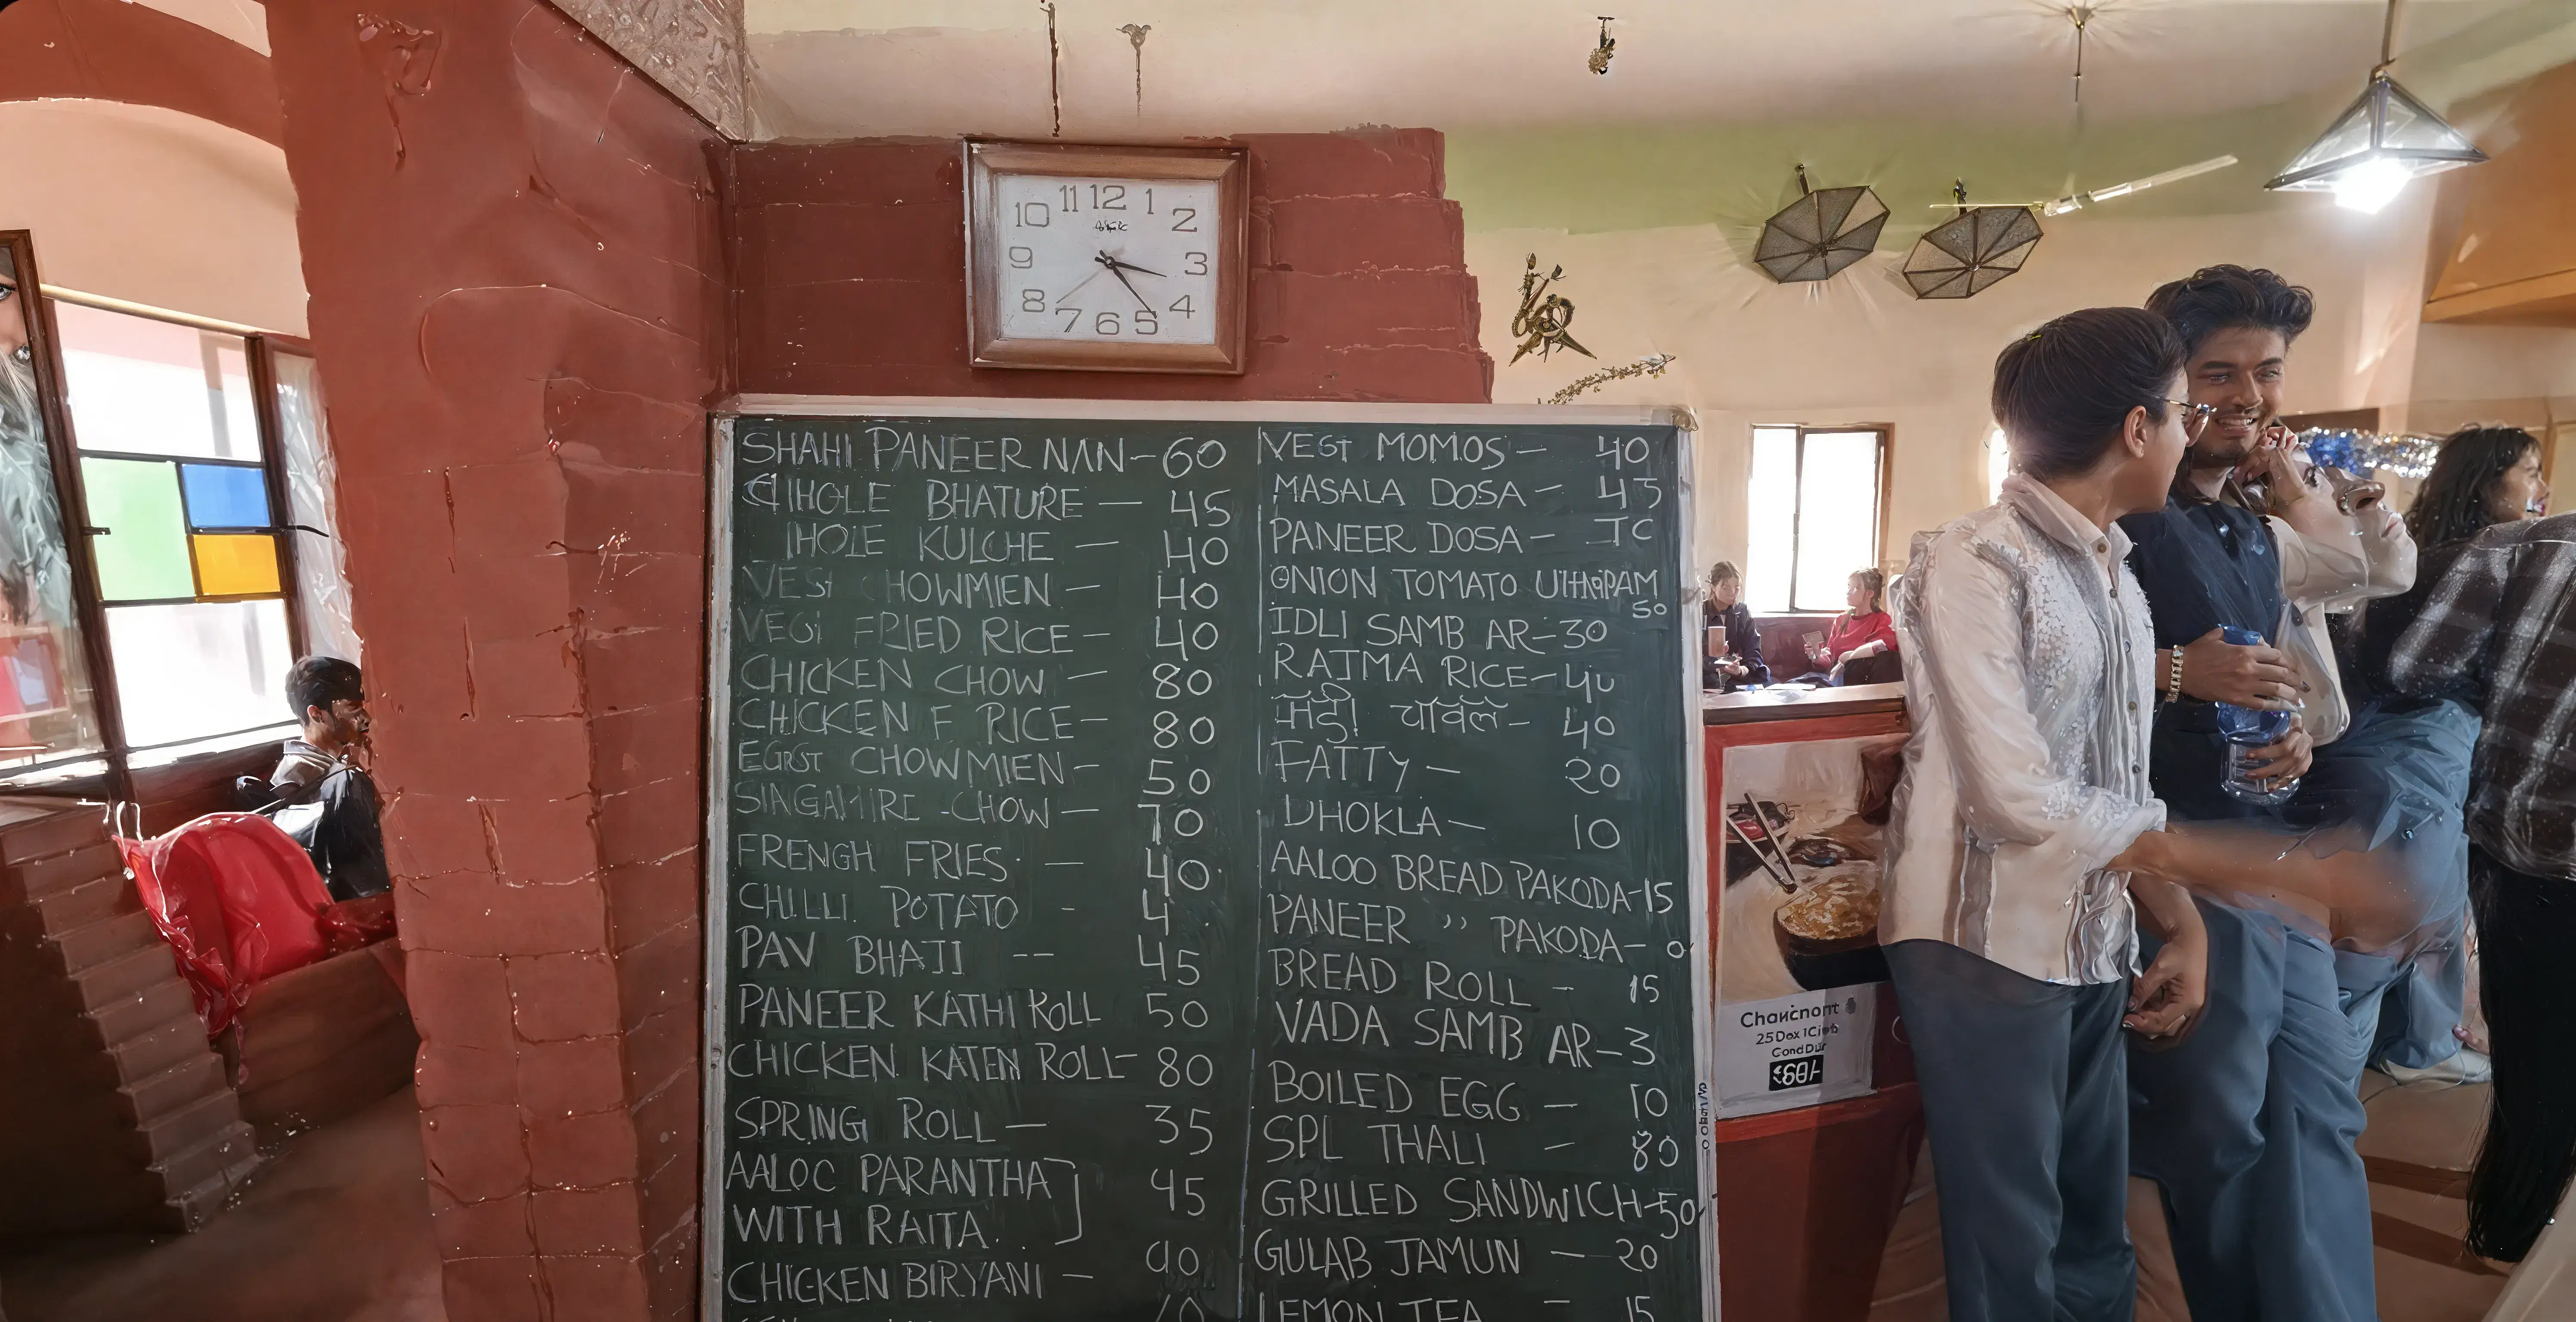 11 12 1
10 2
9 3
8 4
7 6 5
SHAHI PANEER NAN-60
BHATURE - 45
KULCHE - 40
HOWMIEN - 40
FRIED RICE - 40
CHICKEN CHOW - 80
CHICKEN F RICE - 80
CHOWMIEN - 50
-CHOW - 70
FRENGH FRIES - 40
CHILLI POTATO - 4
PAV BHAJI -- 45
PANEER KATHI ROLL 50
CHICKEN KATEN ROLL- 80
SPRING ROLL - 35
AALOC PARANTHA
WITH RAITA 45
CHICKEN BIRYANI - 90
MOMOS - 40
MASALA DOSA - 45
PANEER DOSA -
ONION TOMATO
50
IDLI SAMB AR-30
RAJMA RICE-40
40
FATTY - 20
DHOKLA - 10
AALOO BREAD PAKODA-15
PANEER ,, PAKODA-
BREAD ROLL - 15
VADA SAMB AR-3
BOILED EGG - 10
SPL THALI - 80
GRILLED SANDWICH-50
GULAB JAMUN - 20
LEMON TEA - 15